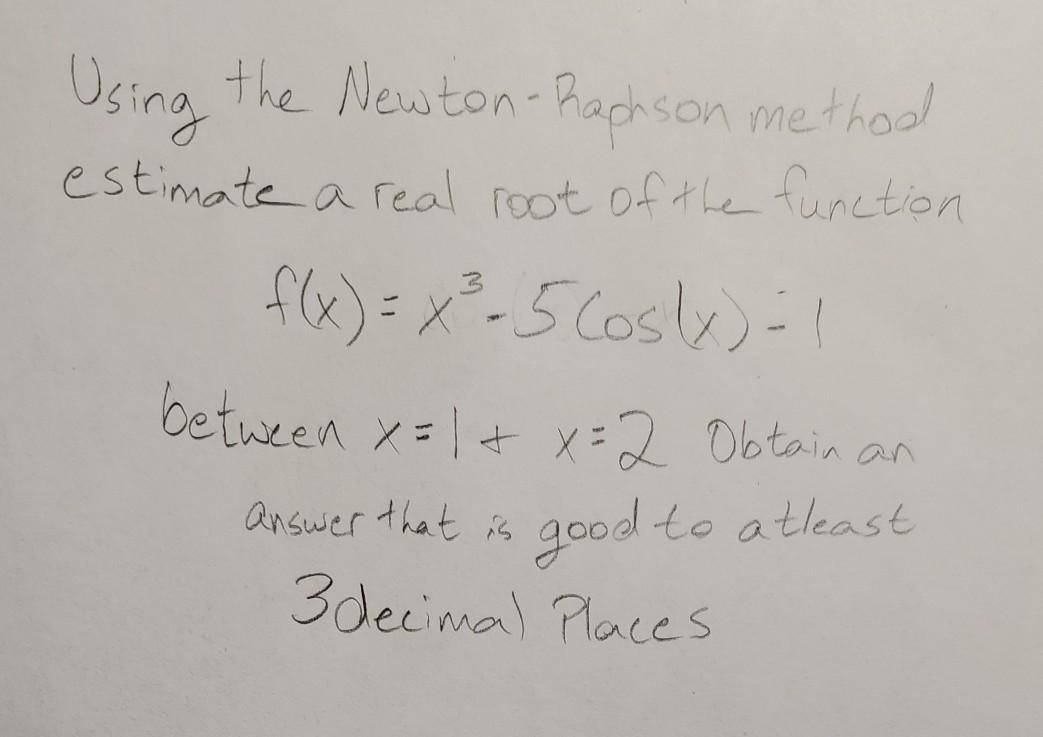 Using the Newton-Raphson method
estimate a real root of the function
f(x) = x³ - 5 Cos(x) - 1
between x = 1 + x = 2 Obtain an
answer that is good to atleast
3 decimal Places